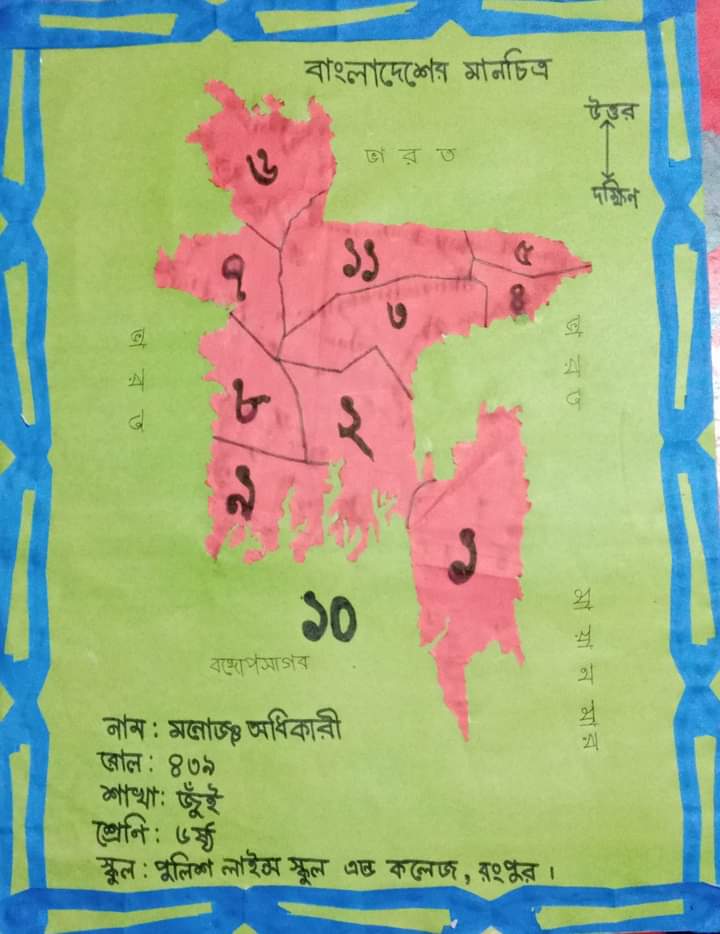 বাংলাদেশের মানচিত্র
উত্তর
দক্ষিন
ভারত
৬
৫
১১
৭
৪
৩
ভারত
ভারত
৮
২
৯
১
১০
মায়ানমার
বঙ্গোপসাগর
নাম : মনোজ্ঞ অধিকারী
রোল : ৪৩৯
শাখা : জুঁই
শ্রেণি : ৬ষ্ঠ
স্কুল : পুলিশ লাইন্স স্কুল এন্ড কলেজ, রংপুর ।